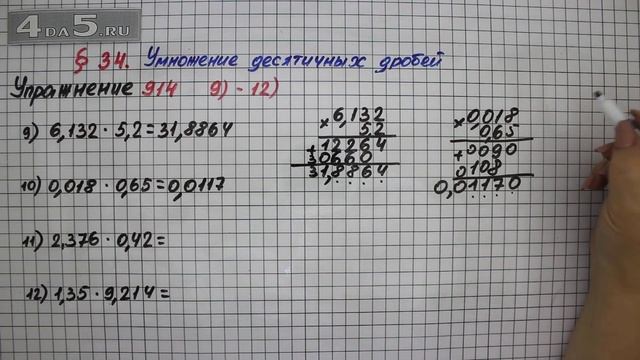 4DA5.RU
§ 34. Умножение десятичных дробей
Упражнение 914 9) - 12)
9) 6,132 · 5,2 = 31,8864
10) 0,018 · 0,65 = 0,0117
11) 2,376 · 0,42 =
12) 1,35 · 9,214 =
6,132
× 5,2
+ 12264
30660
31,8864
0,018
× 0,65
+ 0090
0108
0,01170